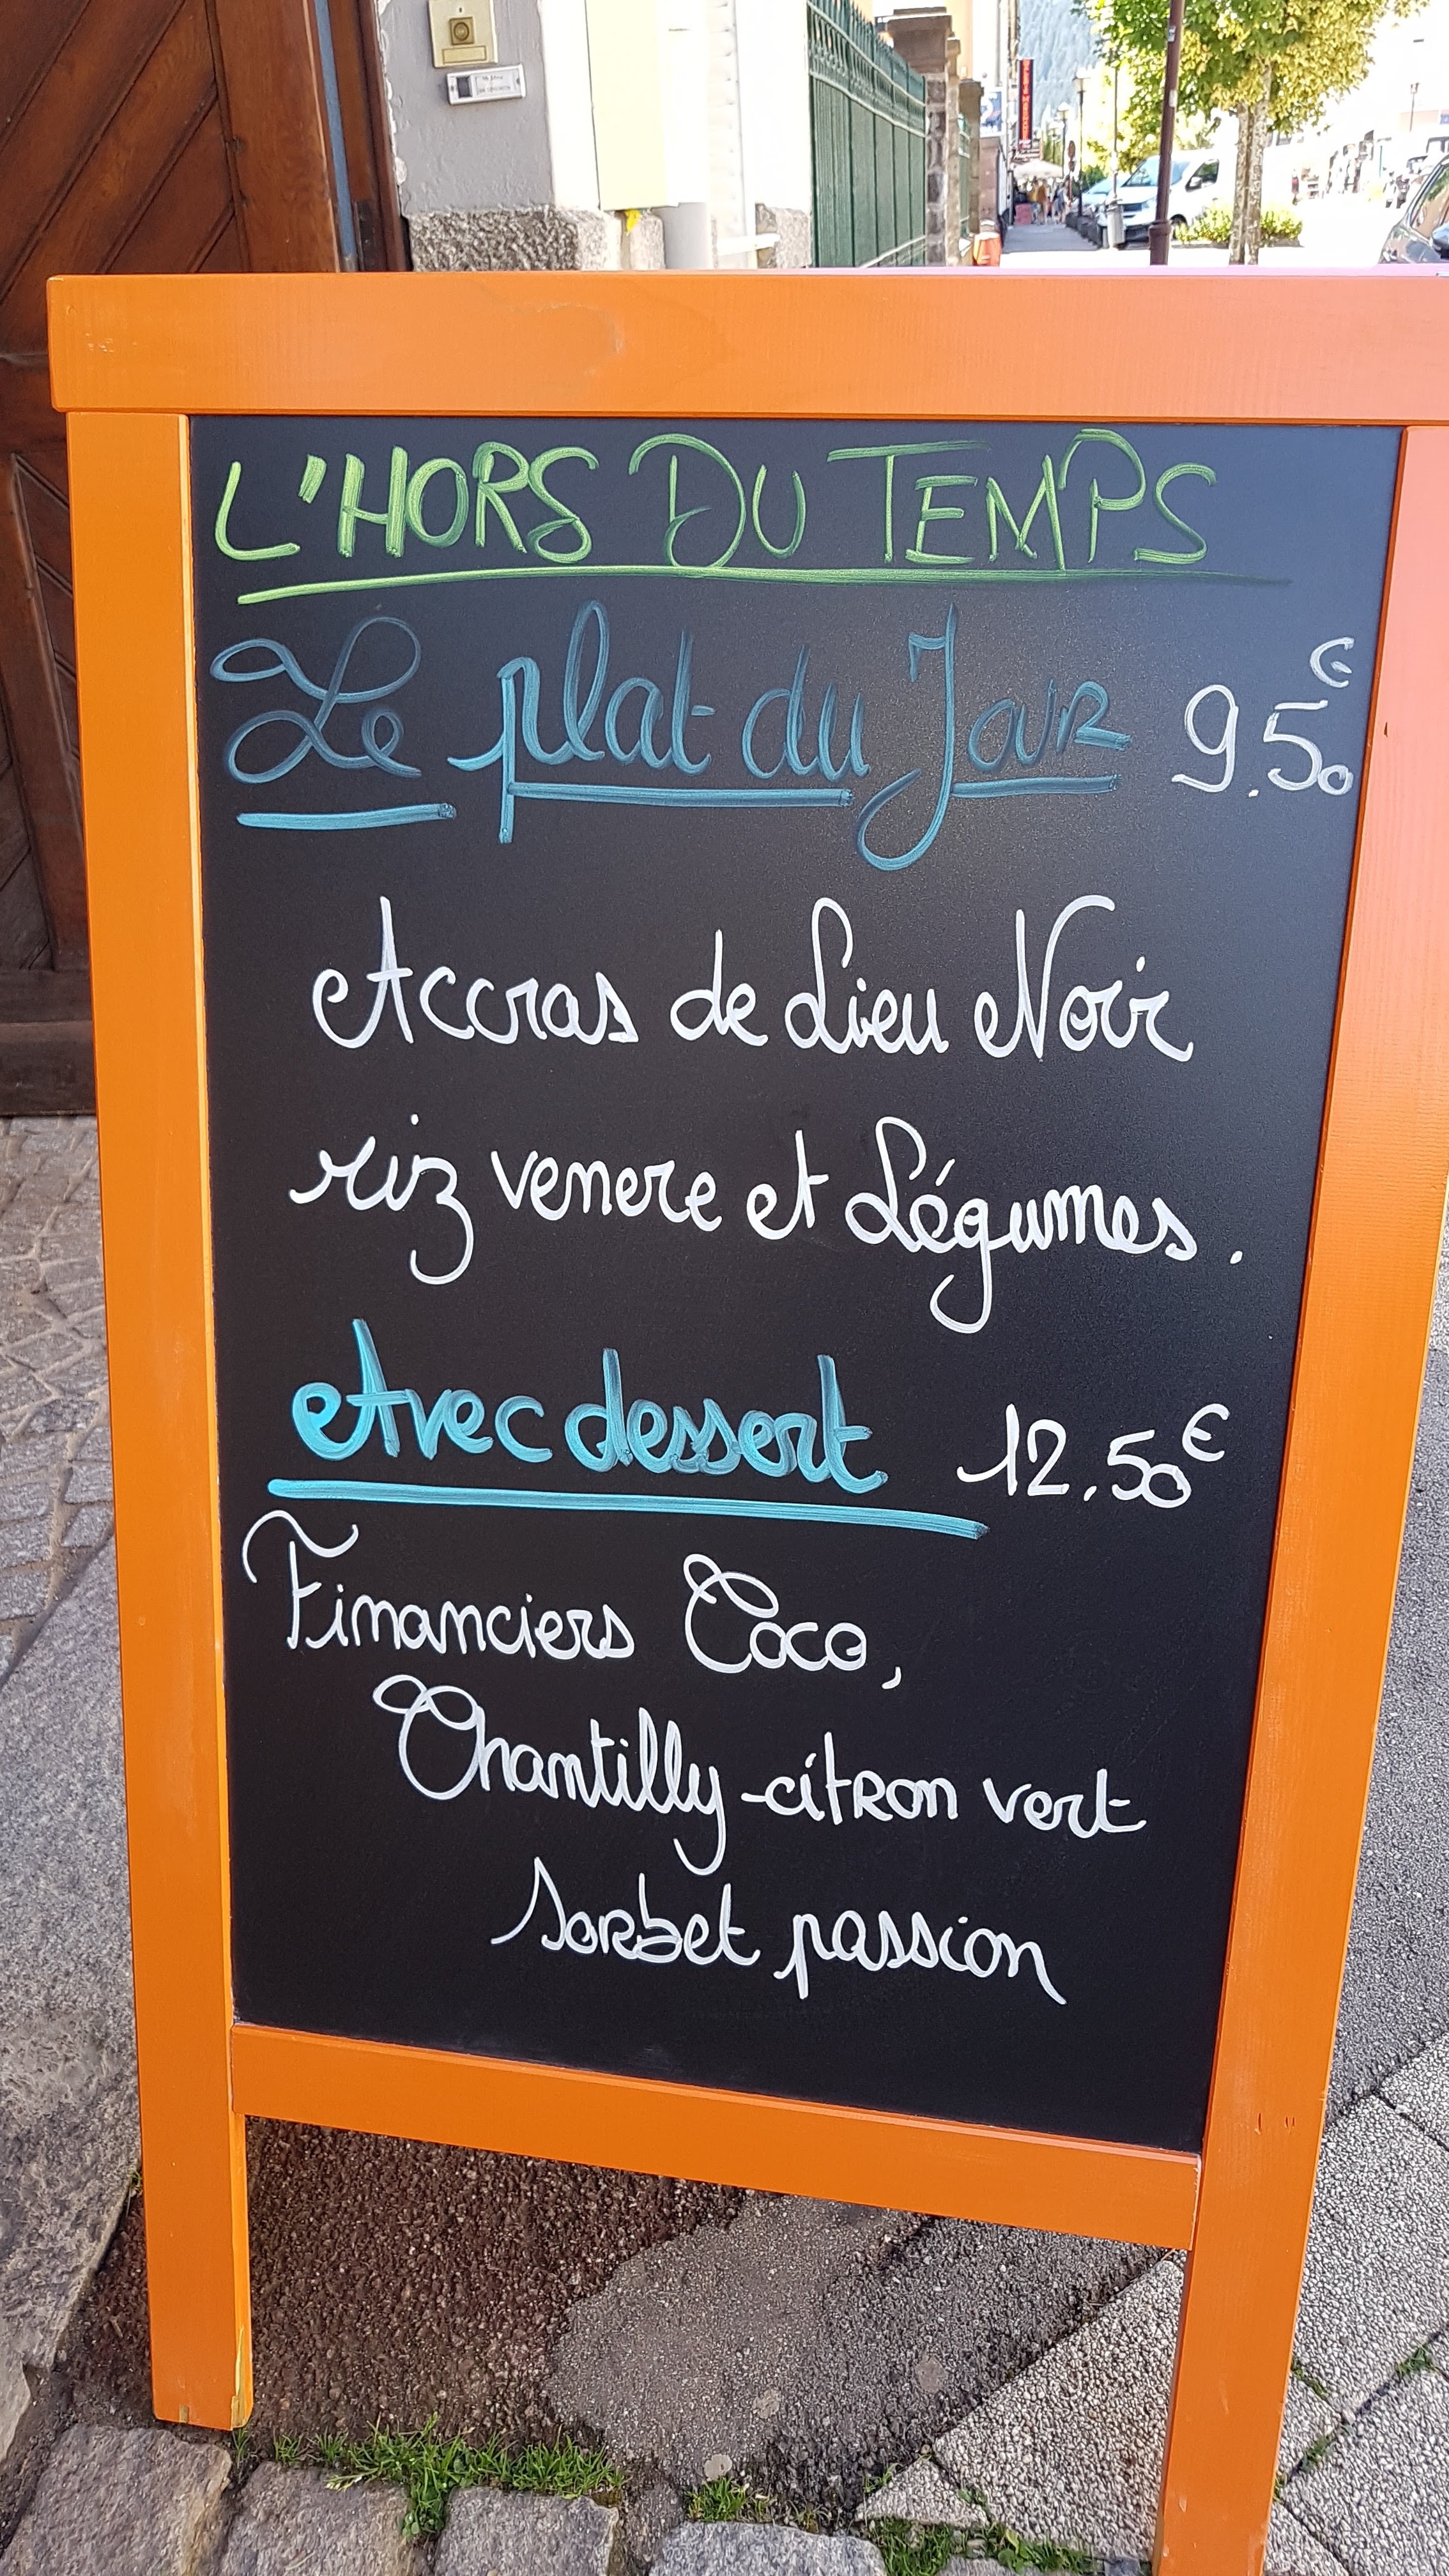 L'HORS DU TEMPS
Le plat du Jour 9.50€
Accras de Lieu Noir
riz venere et Légumes.
Avec dessert 12.50€
Financiers Coco,
Chantilly-citron vert
Sorbet passion